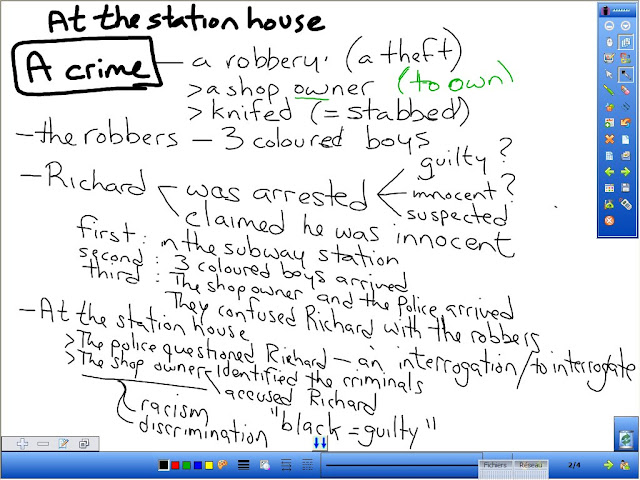 At the station house
A crime — a robbery. (a theft)
> a shop owner (to own)
> knifed (= stabbed)
- the robbers - 3 coloured boys
guilty ?
- Richard was arrested innocent ?
suspected
claimed he was innocent
first : in the subway station
second : 3 coloured boys arrived
third : The shop owner and the Police arrived
They confused Richard with the robbers
- At the station house
> The police questioned Richard - an interrogation / to interrogate
> The shop owner identified the criminals
accused Richard
racism
discrimination "black = guilty"
Fichiers Réseau 2/4